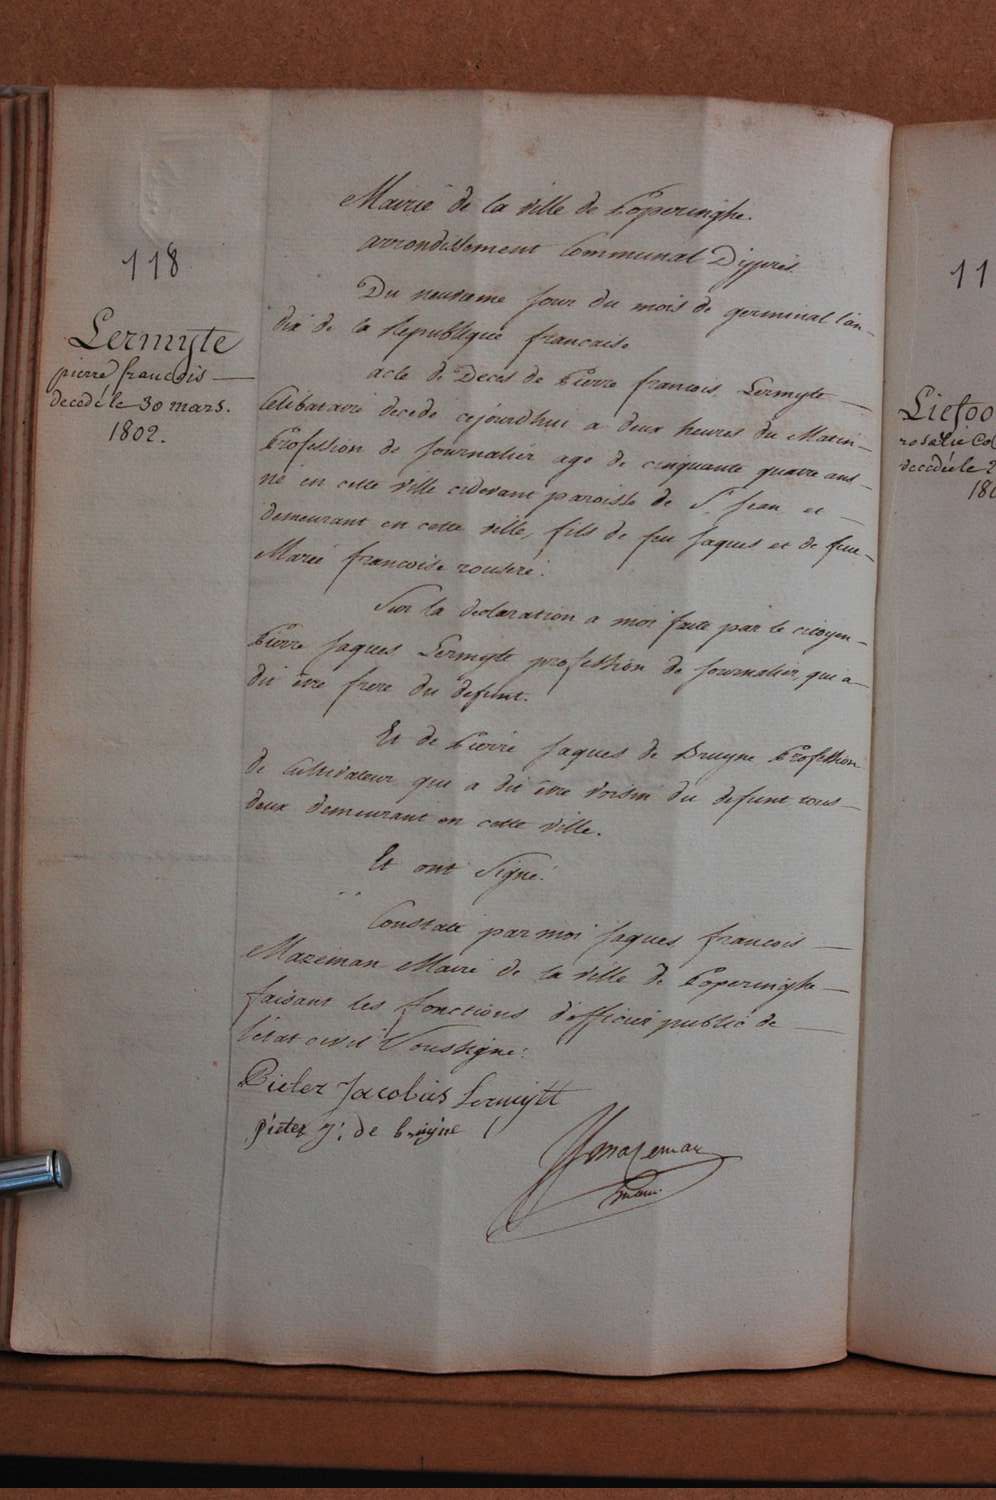 118
Lermyte
pierre francois —
decedé le 30 mars.
1802.
Mairie de la ville de Poperinghe.
arrondissement Communal D'ypres
Du neuvieme jour du mois de germinal l'an —
dix de la Republique francaise
acte de Deces de Pierre francois Lermyte —
Celibataire decedé cejourdhui a deux heures du Matin —
Profession de Journalier age de cinquante quatre ans —
né en cette ville cidevant paroisse de St. Jean et —
demeurant en cette ville, fils de feu Jaques et de feue —
Marie francoise rousere.
Sur la declaration a moi faite par le citoyen —
Pierre Jaques Lermyte profession de Journalier, qui a —
dit etre frere du defunt.
Et de Pierre Jaques de Bruyne Profession
de Cultivateur qui a dit etre voisin du defunt tous —
deux demeurant en cette ville.
Et ont Signé.
Constaté par moi Jaques francois —
Mazeman Maire de la ville de Poperinghe —
faisant les fonctions d'officier public de —
l'etat civil Soussigné.
Pieter Jacobus Lermytt
pieter J: de bruijne
JJmazeman
maire
11
Liefoo
rosalie Col
decedée le 2
180